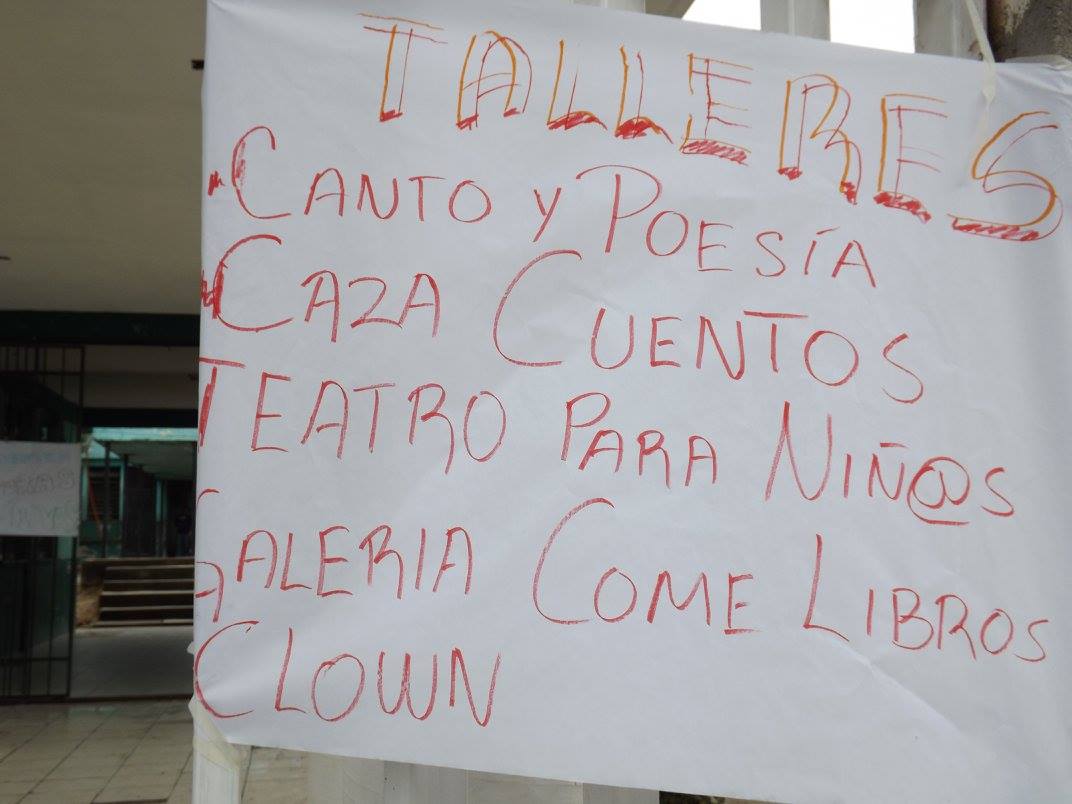 TALLERES
-CANTO Y POESÍA
-CAZA CUENTOS
TEATRO PARA NIÑ@S
GALERIA COME LIBROS
CLOWN